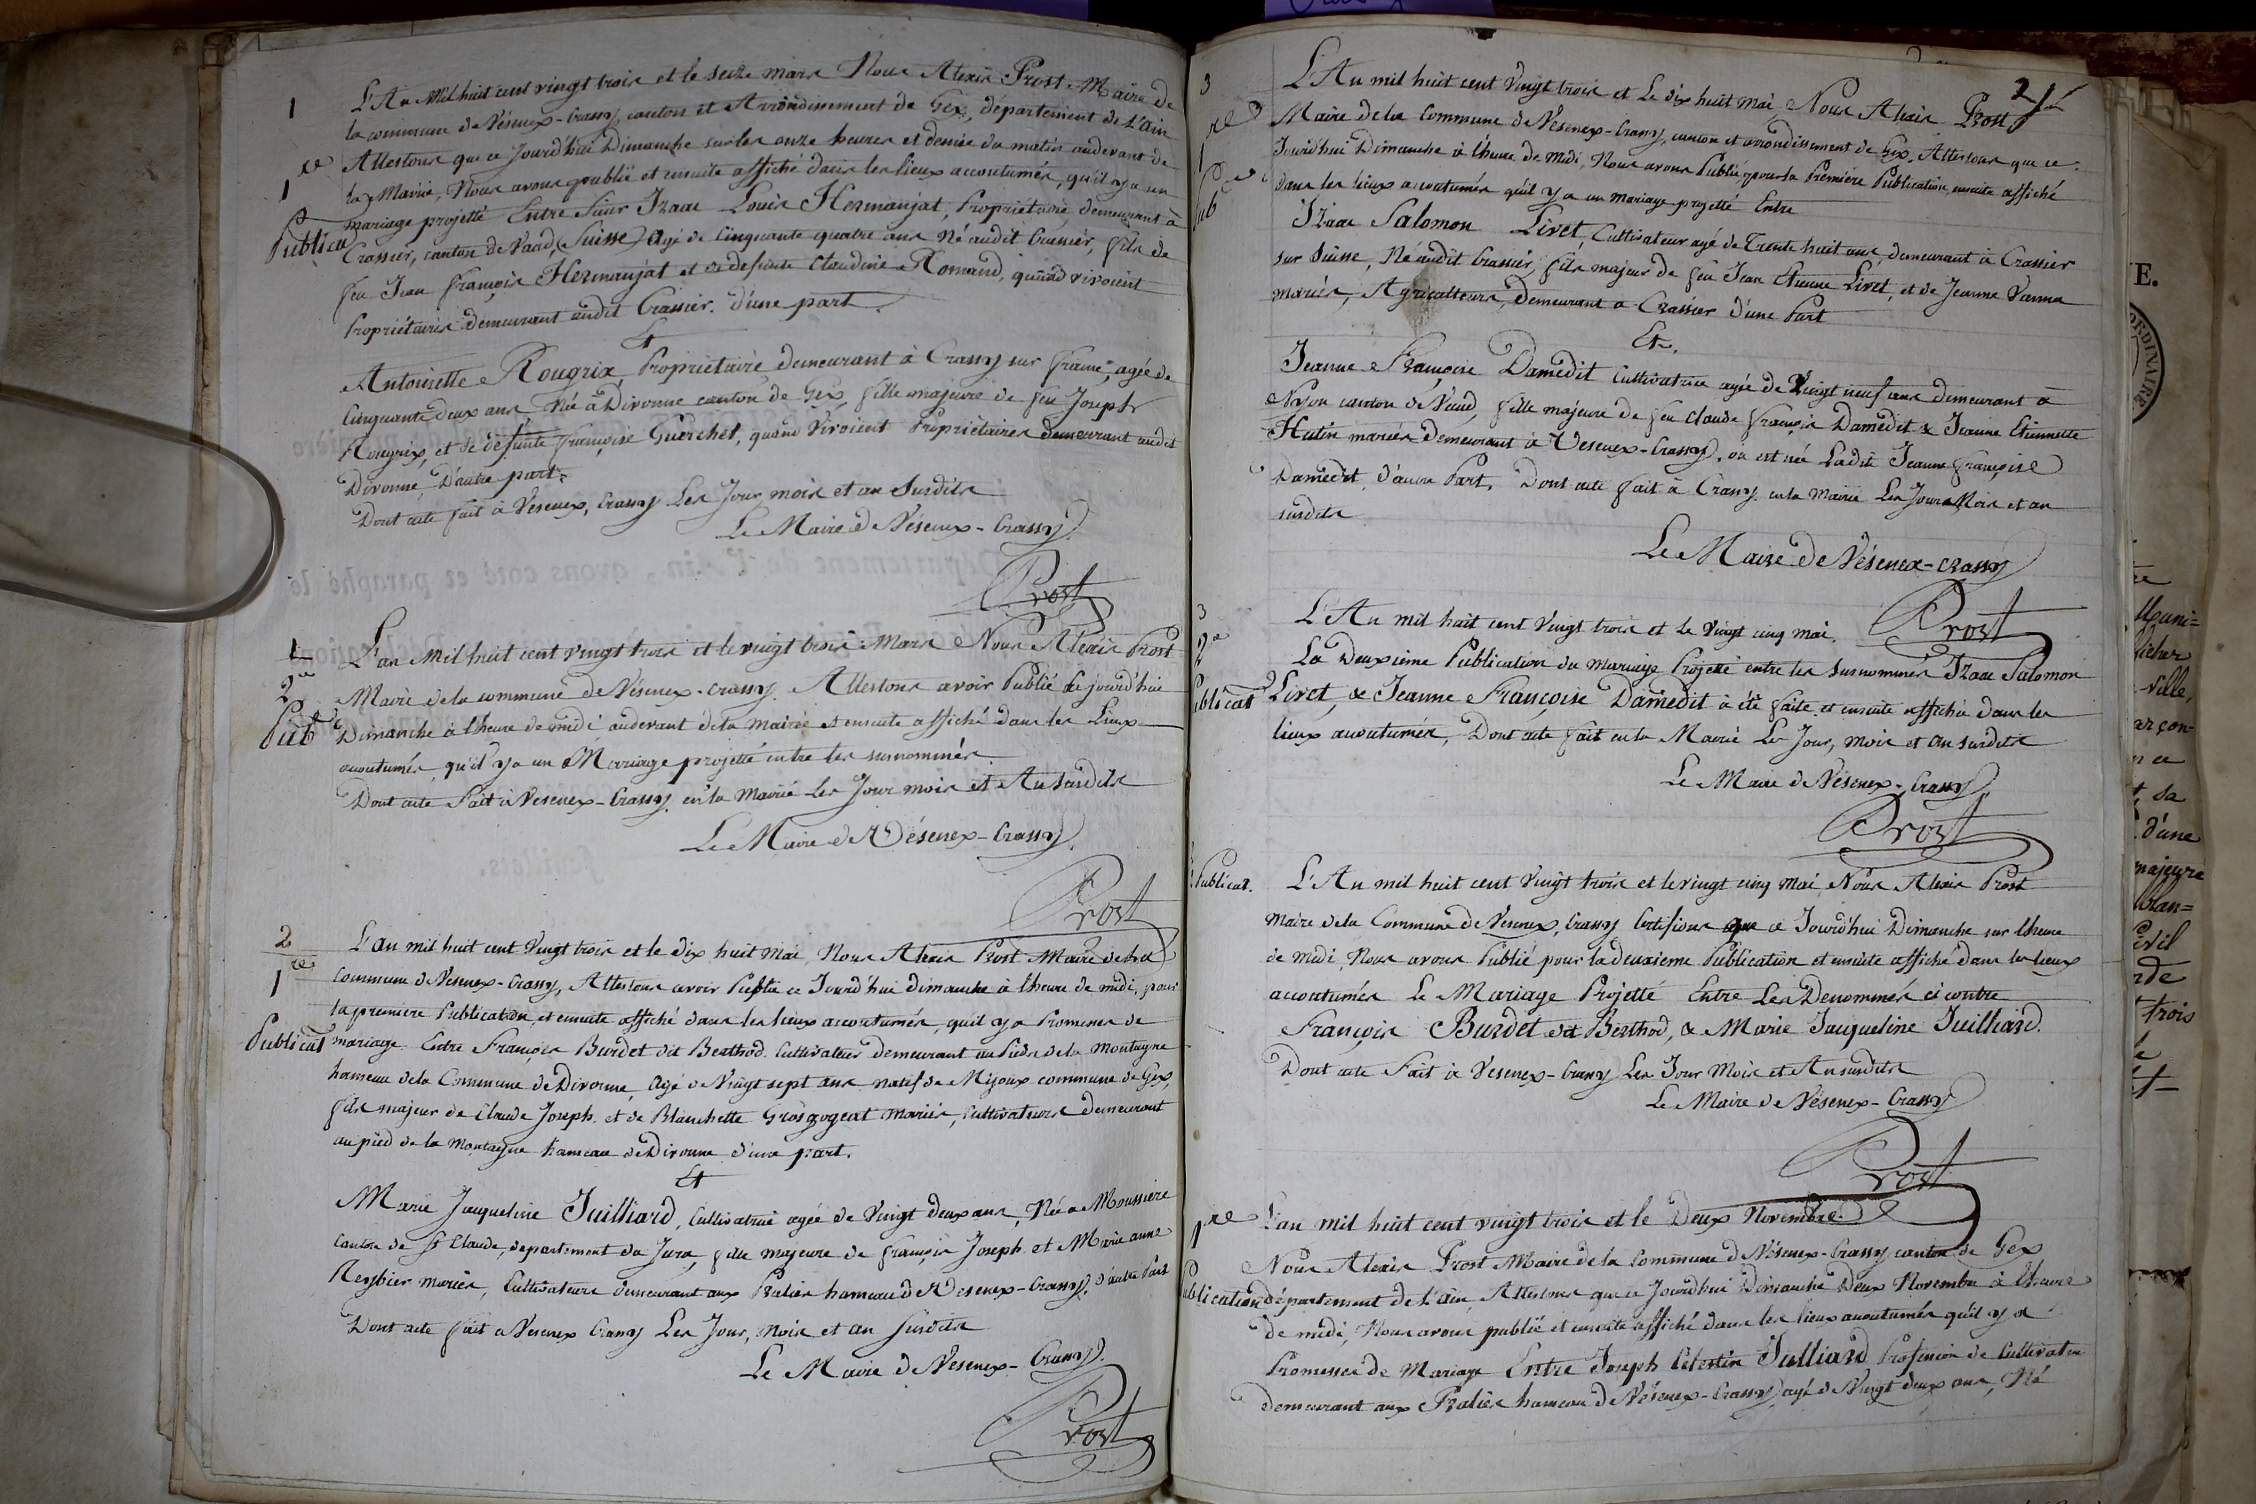 1
L'An Mil huit cent vingt trois et le seize mars Nous Alexis Prost Maire de
la commune de Vésenex-Crassy, canton et Arrondissement de Gex, département de L'ain
1re Attestons que ce Jourd'hui Dimanche sur les onze heures et demie du matin audevant de
la Mairie, Nous avons publié et ensuite affiché dans les lieux accoutumés, qu'il y a un
Publica mariage projetté Entre Sieur Izaac Louis Hermanjat, Propriétaire, demeurant à
Crassier, canton de Vaud, (Suisse) Agé de Cinquante quatre ans Né audit Crassier, fils de
feu Jean François Hermanjat et de defunte Claudine Romand, quand vivoient
Propriétaires demeurant audit Crassier. d'une part
Et
Antoinette Rougrix, Propriétaire demeurant à Crassy sur france, agée de
Cinquante deux ans Née à Divonne canton de Gex, fille majeure de feu Joseph
Rougrix, et de defunte françoise Guerchet, quand Vivoient Propriétaires demeurant audit
Divonne, D'autre part.
Dont acte fait à Vesenex, Crassy Les Jour, mois et an Susdits
Le Maire de Vésenex-Crassy.
Prost
1
L'an Mil huit cent vingt trois et le vingt trois Mars Nous Alexis Prost
2me Maire de la commune de Vésenex-crassy. Attestons avoir Publié ce jourd'hui
Pub Dimanche à l'heure de midi audevant de la mairie et ensuite affiché dans les Lieux
accoutumés, qu'il y a un Mariage projetté entre les surnommés.
Dont acte Fait à Vesenex-Crassy en la Mairie Les Jour mois et An Susdits
Le Maire de Vésenex-Crassy.
Prost
2
L'an mil huit cent Vingt trois et le dix huit Mai, Nous Alexis Prost Maire de la
1re commune de Vesenex-Crassy, Attestons avoir Publié ce Jourd'hui dimanche à l'heure de midi, pour
la première Publication, et ensuite affiché dans les lieux accoutumés, qu'il y a Promesses de
Publicat mariage Entre François Burdet dit Berthod Cultivateur demeurant au Pied de la Montagne
hameau de la Commune de Divonne, Agé de Vingt sept ans natif de Mijoux commune de Gex,
fils majeur de Claude Joseph et de Blanchette Grosgogeat mariés, Cultivateurs demeurant
au pied de la Montagne hameau de Divonne d'une part.
Et
Marie Jaqueline Juilliard, Cultivatrice agée de Vingt deux ans, Née à Moussiere
Canton de St Claude, departement du Jura, fille majeure de François Joseph et Marie anne
Reybier mariés, Cultivateurs demeurant aux Pralies hameau de Vesenex-Crassy, D'autre Part
Dont acte fait à Vesenex Crassy Les Jour, Mois et an Susdits
Le Maire de Vesenex-Crassy.
Prost
2
3
L'An mil huit cent Vingt trois et Le dix huit Mai, Nous Alexis Prost
1re Maire de la Commune de Vesenex-Crassy, canton et arrondissement de Gex, Attestons que ce
Jourd'hui Dimanche à l'heure de Midi, Nous avons Publié pour la Première Publication, ensuite affiché
Pub dans les lieux accoutumés qu'il y a un mariage projetté Entre
Izaac Salomon Livet, Cultivateur agé de Trente huit ans, demeurant à Crassier
sur Suisse, Né audit Crassier, fils majeur de feu Jean Etienne Livet, et de Jeanne Vanna
mariés, Agriculteurs, demeurant à Crassier d'une Part
Et,
Jeanne Françoise Damédit Cultivatrice agée de Vingt neuf ans demeurant à
Nyon canton de Vaud, fille majeure de feu Claude françois Damédit & Jeanne Etiennette
Hutin mariés demeurant à Vesenex-Crassy, où est née Ladite Jeanne françoise
Damédit, d'autre Part. Dont acte fait à Crassy en la Mairie Les Jour, Mois et an
susdits
Le Maire de Vésenex-crassy
Prost
3
L'An mil huit cent Vingt trois et le Vingt cinq mai.
2e La Deuxième Publication du Mariage Projetté entre les Surnommés Izaac Salomon
ublicat Livet, & Jeanne Françoise Damédit à été faite et ensuite affichée dans les
lieux accoutumés, Dont acte fait en la Mairie Les Jour, mois et an susdits
Le Maire de Vésenex-Crassy.
Prost
Publicat. L'An mil huit cent Vingt trois et le vingt cinq Mai Nous Alexis Prost
Maire de la Commune de Vesenex, Crassy Certifions que ce Jourd'hui Dimanche sur l'heure
de midi, Nous avons Publié pour la deuxieme Publication et ensuite affiché dans les lieux
accoutumés Le Mariage Projetté Entre Les Denommés ci contre
François Burdet dit Berthod, & Marie Jacqueline Juilliard.
Dont acte Fait à Vesenex-Crassy Les Jour Mois et An susdits
Le Maire de Vésenex-Crassy
Prost
1re L'an mil huit cent vingt trois et le Deux Novembre.
Nous Alexis Prost Maire de la Commune de Vésenex-Crassy canton de Gex
ublication département de L'ain, Attestons que ce Jourd'hui Dimanche Deux Novembre à l'heure
de midi, Nous avons publié et ensuite affiché dans les lieux accoutumés qu'il y a
Promesses de Mariage Entre Joseph Célestin Julliard Profession de Cultivateur
demeurant aux Pralies hameau de Vésenex-Crassy, agé de Vingt deux ans, Né